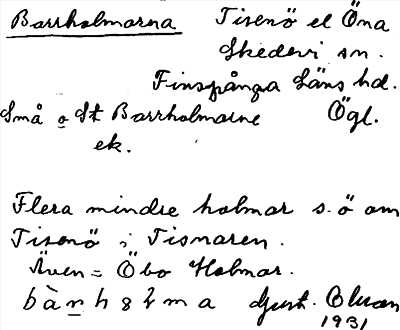 Barrholmarna Tisenö el Öna
Skedevi sn.
Finspånga Läns hd.
Små o St Barrholmarne Ögl.
ek.
Flera mindre holmar s.ö om
Tisenö i Tisnaren.
Även = Öbo Holmar.
Gust.
1931